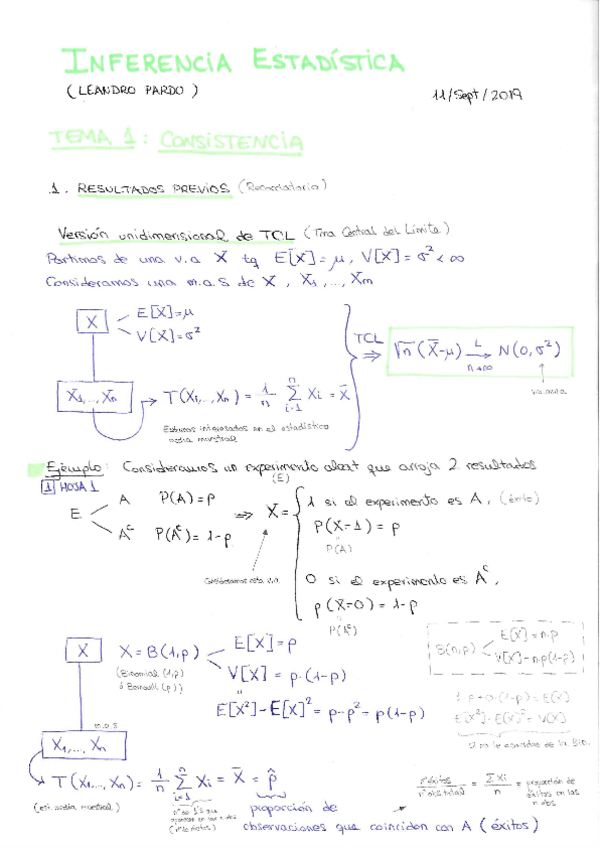 INFERENCIA ESTADÍSTICA
(LEANDRO PARDO)
11/Sept/2019
TEMA 1: CONSISTENCIA
1. RESULTADOS PREVIOS (Recordatorio)
Versión unidimensional de TCL (Tma Central del Límite)
Partimos de una v.a X tq E[X]=μ, V[X]=σ²<∞
Consideramos una m.a.s de X, X₁,...,Xₙ
X
E[X]=μ
V[X]=σ²
TCL ⇒ √n(X̄-μ) →ᴸ N(0,σ²)
n→∞
X₁,...,Xₙ
T(X₁,...,Xₙ) = 1/n Σⁿᵢ₌₁ Xᵢ = X̄
Estamos interesados en el estadístico
media muestral
varianza
Ejemplo: Consideramos un experimento aleat que arroja 2 resultados
(E)
1 HOJA 1
E
A P(A)=p
Aᶜ P(Aᶜ)=1-p
⇒ X =
1 si el experimento es A, (éxito)
P(X=1)=p
P(A)
0 si el experimento es Aᶜ,
p(X=0)=1-p
P(Aᶜ)
Consideramos esta v.a.
X
X=B(1,p)
(Binomial (1,p)
ó Bernoulli (p))
E[X]=p
V[X]=p·(1-p)
E[X²]-E[X]²=p-p²=p(1-p)
B(n,p)
E[X]=n·p
V[X]=n·p(1-p)
1·p+0·(1-p)=E[X]
E[X²]-E[X]²=V[X]
m.a.s
X₁,...,Xₙ
T(X₁,...,Xₙ) = 1/n Σⁿᵢ₌₁ Xᵢ = X̄ = p̂
(est. media muestral)
nº éxitos/nº obs total = ΣXᵢ/n = proporción de
éxitos en las
n obs
proporción de
observaciones que coinciden con A (éxitos)